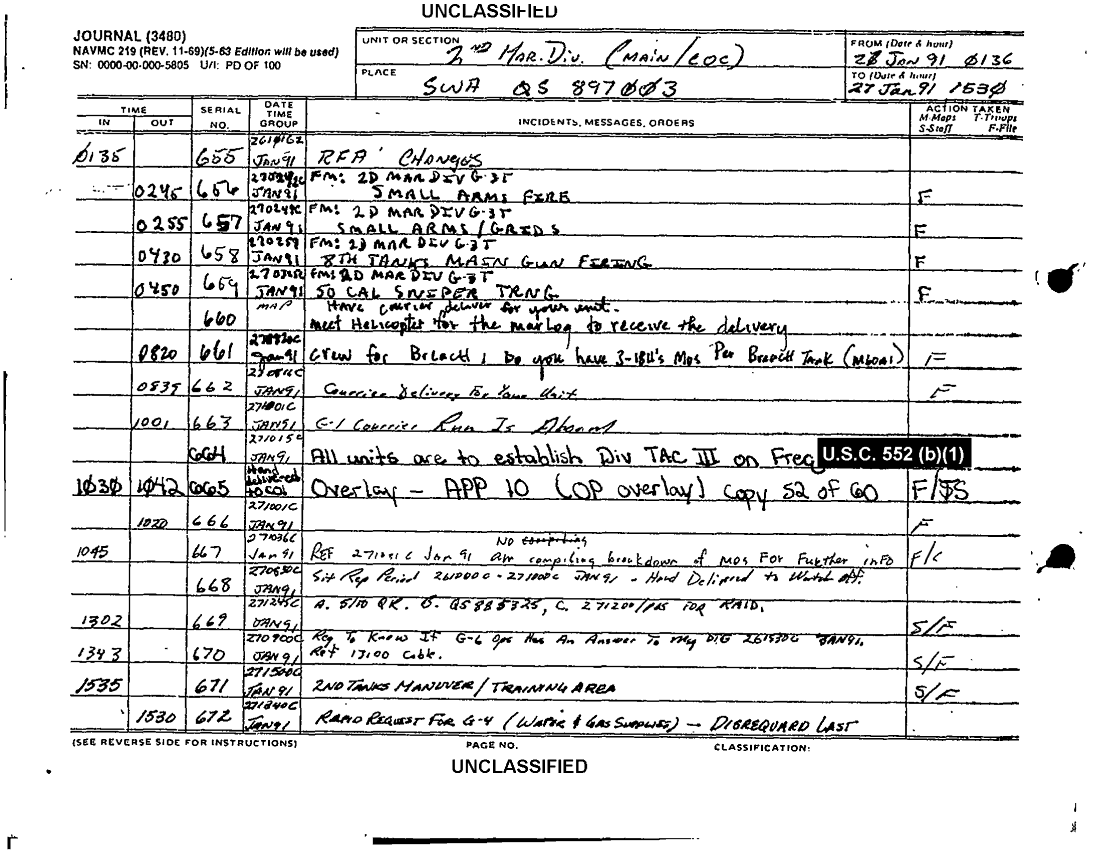 UNCLASSIFIED
JOURNAL (3480)
NAVMC 219 (REV. 11-69)(5-63 Edition will be used)
SN: 0000-00-000-5805 U/I: PD OF 100
UNIT OR SECTION
2ND MAR. DIV. (MAIN/COC)
PLACE
SWA QS 897003
FROM (Date & hour)
JAN 91 0136
TO (Date & hour)
27 Jan 91 1530
TIME
IN OUT
SERIAL NO.
DATE TIME GROUP
INCIDENTS, MESSAGES, ORDERS
ACTION TAKEN
M-Maps T-Troops
S-Staff F-File
0135 655 JAN 91 RFA CHANGES
FM: 2D MAR DIV G-3T
0245 656 JAN 91 SMALL ARMS FIRE F
FM: 2D MAR DIV G-3T
0255 657 JAN 91 SMALL ARMS/GRIDS F
FM: 2D MAR DIV G-3T
0430 658 JAN 91 8TH TANKS MAIN GUN FIRING F
FM: 2D MAR DIV G-3T
0450 659 JAN 91 50 CAL SNIPER TRNG F
MAP Have courier deliver for your unit.
660 meet Helicopter for the marlog to receive the delivery
0820 661 Jan 91 Crew for Breach; Do you have 3-1811's Mos Per Breach Tank (M60A1) F
0839 662 JAN 91 Courrier Delivery For Your Unit F
271001C
1001 663 JAN 91 G-1 Courrier Run Is Aboard
271015C
664 JAN 91 All units are to establish Div TAC III on Freq U.S.C. 552 (b)(1)
1030 1042 665 Hand delivered to COC Overlay - APP 10 (OP overlay) copy 52 of 60 F/
271001C
1020 666 JAN 91 F
271036C NO compiling
1045 667 Jan 91 REF Jan 91 are compiling breakdown of mos For Further info F/
668 JAN 91 Sit Rep Period 261000C - 271000C JAN 91 - Hand Delivered to Watch off.
271245C A. 5/10 QK. B. QS 885325, C. FOR RAID.
1302 669 JAN 91 S/F
270900C Req To Know If G-6 Ops Has An Answer To My DTG 261530C JAN 91.
1343 670 JAN 91 Ref Cable. S/F
271500C
1535 671 JAN 91 2ND TANKS MANUVER/TRAINING AREA S/F
1530 672 JAN 91 RAPID REQUEST FOR G-4 (WATER & GAS SUPPLIES) - DISREQUARD LAST
(SEE REVERSE SIDE FOR INSTRUCTIONS) PAGE NO. CLASSIFICATION:
UNCLASSIFIED